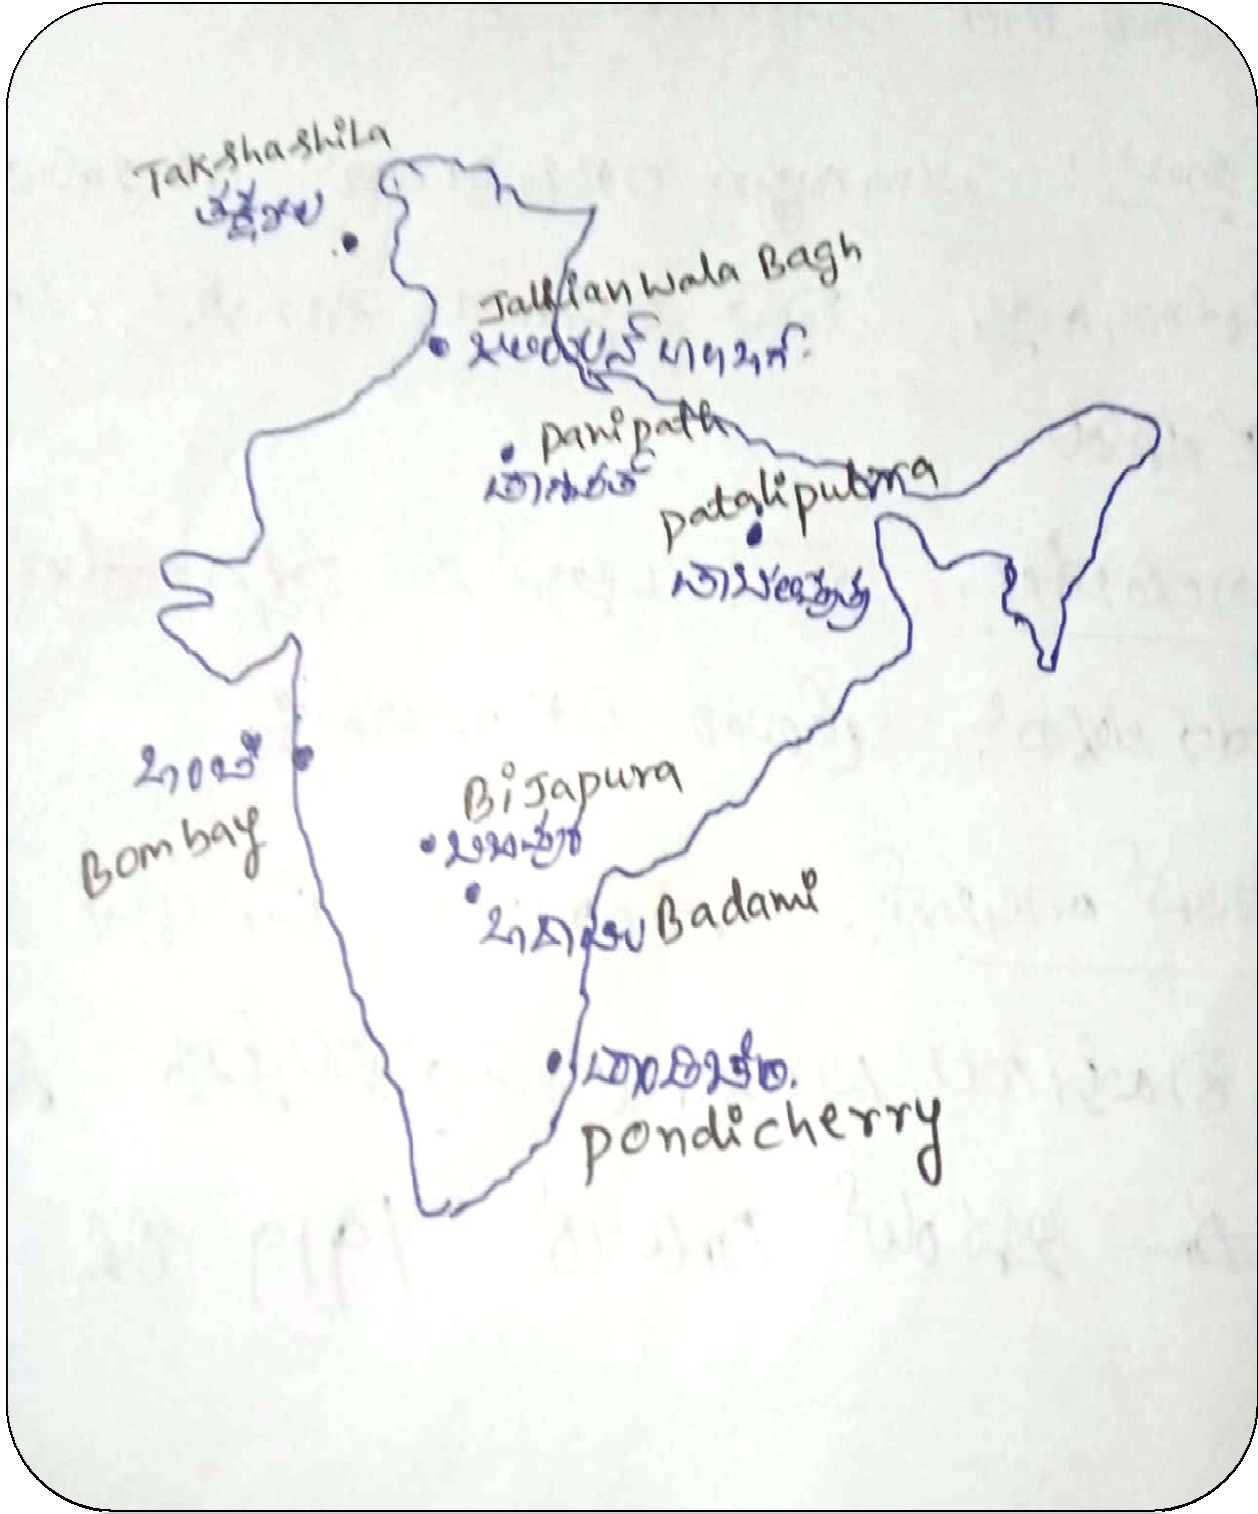 Takshashila
ತಕ್ಷಶಿಲ
Jallianwala Bagh
ಜಲಿಯನ್ ವಾಲಾಬಾಗ್.
panipath
ಪಾಣಿಪತ್
pataliputra
ಪಾಟಲಿಪುತ್ರ
ಬಾಂಬೆ
Bombay
BiJapura
ಬಿಜಾಪುರ
ಬಾದಾಮಿ Badami
ಪಾಂಡಿಚೇರಿ.
pondicherry